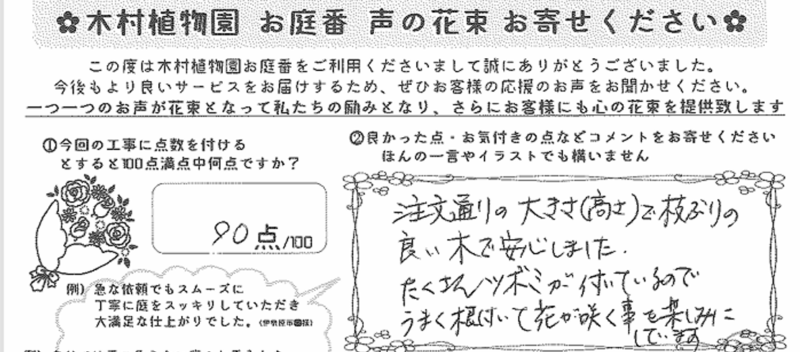 ✿木村植物園 お庭番 声の花束 お寄せください✿
この度は木村植物園お庭番をご利用くださいまして誠にありがとうございました。
今後もより良いサービスをお届けするため、ぜひお客様の応援のお声をお聞かせください。
一つ一つのお声が花束となって私たちの励みとなり、さらにお客様にも心の花束を提供致します
①今回の工事に点数を付ける
とすると100点満点中何点ですか？
90点/100
例）急な依頼でもスムーズに
丁寧に庭をスッキリしていただき
大満足な仕上がりでした。(伊勢原市
②良かった点・お気付きの点などコメントをお寄せください
ほんの一言やイラストでも構いません
注文通りの大きさ(高さ)で枝ぶりの
良い木で安心しました.
たくさんツボミが付いているので
うまく根付いて花が咲く事を楽しみに
しています